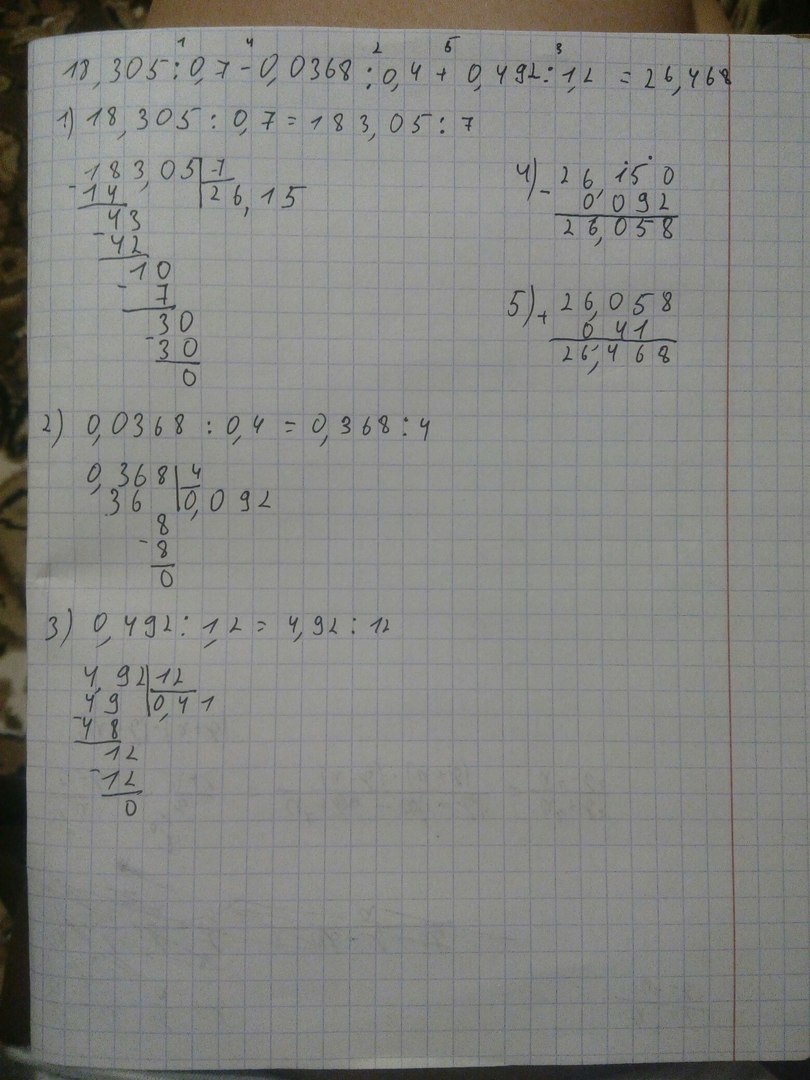 1 4 2 5 3
18,305:0,7-0,0368:0,4+0,492:1,2 = 26,468
1) 18,305 : 0,7 = 183,05 : 7
183,05 7
-14 26,15
43
-42
10
-7
30
-30
0
2) 0,0368 : 0,4 = 0,368 : 4
0,368 4
36 0,092
8
-8
0
3) 0,492 : 1,2 = 4,92 : 12
4,92 12
49 0,41
-48
12
-12
0
4) - 26,150
0,092
26,058
5) + 26,058
0 41
26,468